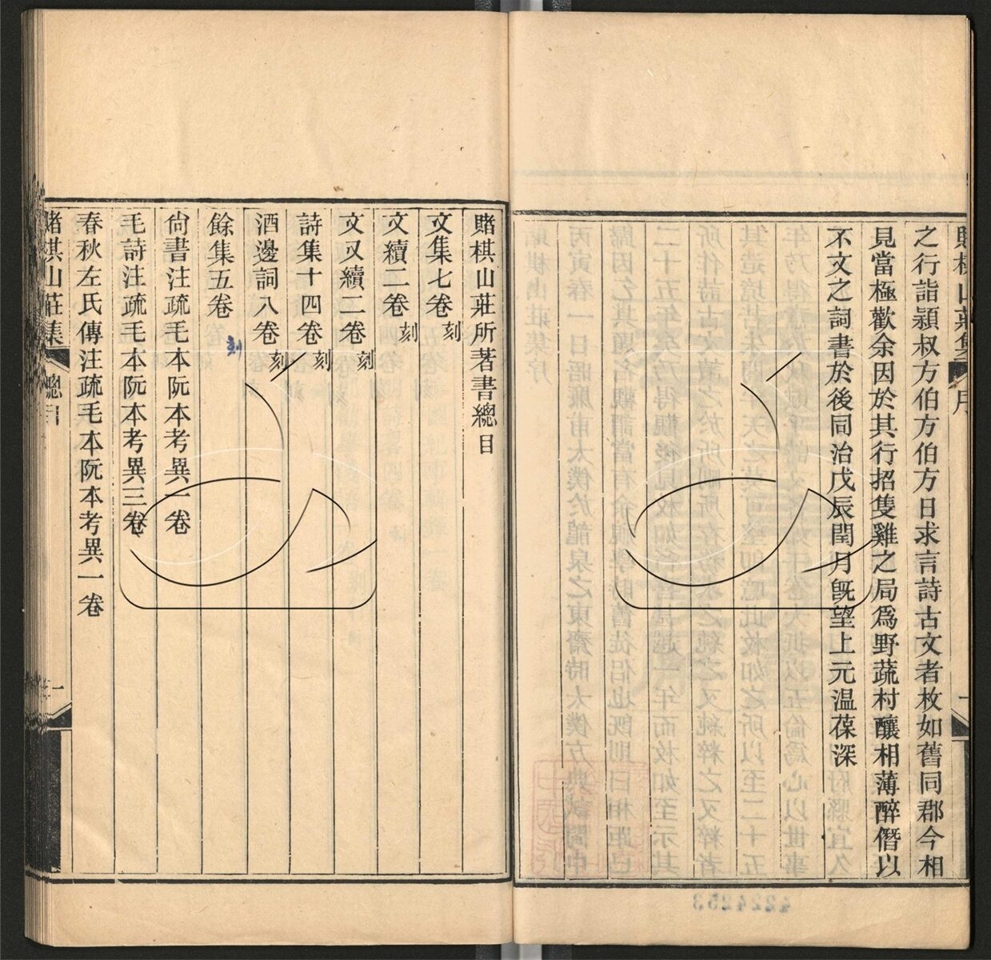 之行詣穎叔方伯方伯方日求言詩古文者枚如舊同郡今相
見當極歡余因於其行招隻雞之局爲野蔬村釀相薄醉僭以
不文之詞書於後同治戊辰閏月旣望上元温葆深
賭棋山莊所著書總目
文集七卷 刻
文續二卷 刻
文又續二卷 刻
詩集十四卷 刻
酒邊詞八卷 刻
餘集五卷 刻
尙書注疏毛本阮本考異一卷
毛詩注疏毛本阮本考異三卷
春秋左氏傳注疏毛本阮本考異一卷
賭棋山莊集